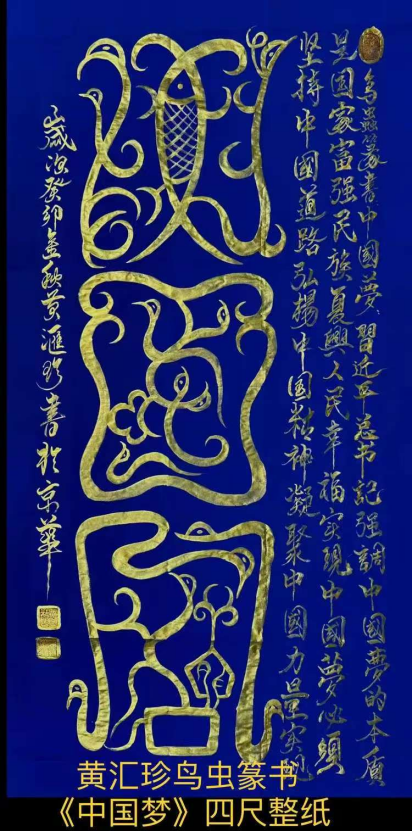 鸟蟲篆書中国夢習近平总书记强調中國夢的本质
是国家富强民族复興人民幸福实现中国夢必须
坚持中國道路弘揚中国精神凝聚中国力量实现
歲次癸卯金秋黄滙珍書於京華
黄汇珍鸟虫篆书
《中国梦》四尺整纸